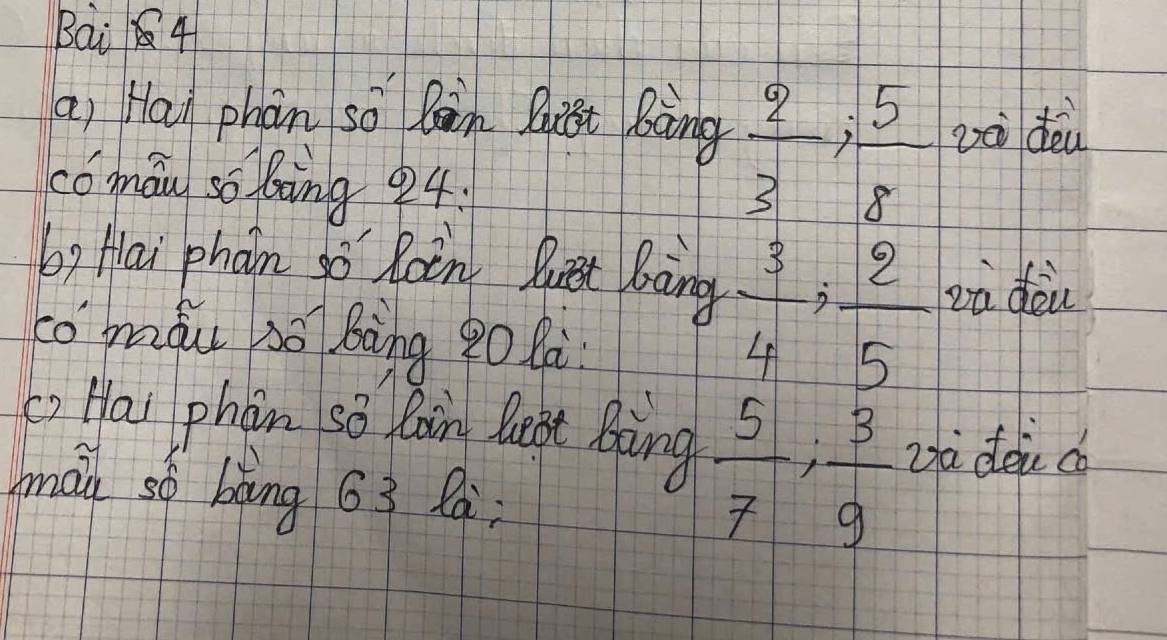 Bài 4
a) Hai phân số lần lượt bằng 2/3 ; 5/8 và đều
có mẫu số bằng 24:
b) Hai phân số lần lượt bằng 3/4 ; 2/5 và đều
có mẫu số bằng 20 là:
c) Hai phân số lần lượt bằng 5/7 ; 3/9 và đều có
mẫu số bằng 63 là: